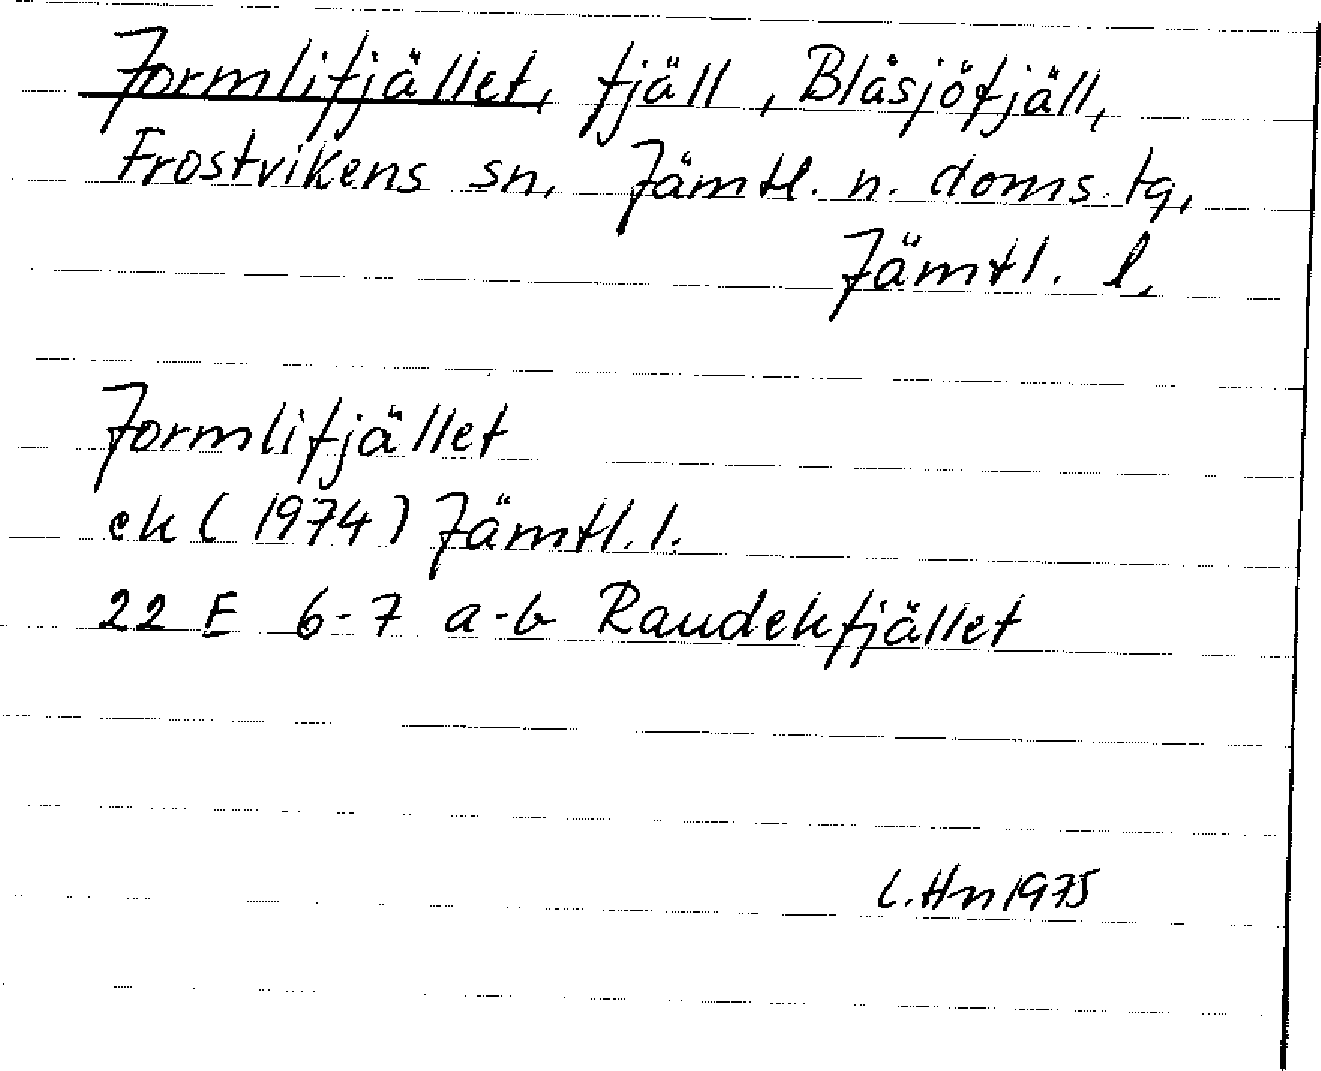 Jormlifjället, fjäll, Blåsjöfjäll,
Frostvikens sn, Jämtl. n. doms.tg,
Jämtl. l.
Jormlifjället
ek (1974) Jämtl. l.
22 E 6-7 a-b Raudekfjället
L.Hn 1975